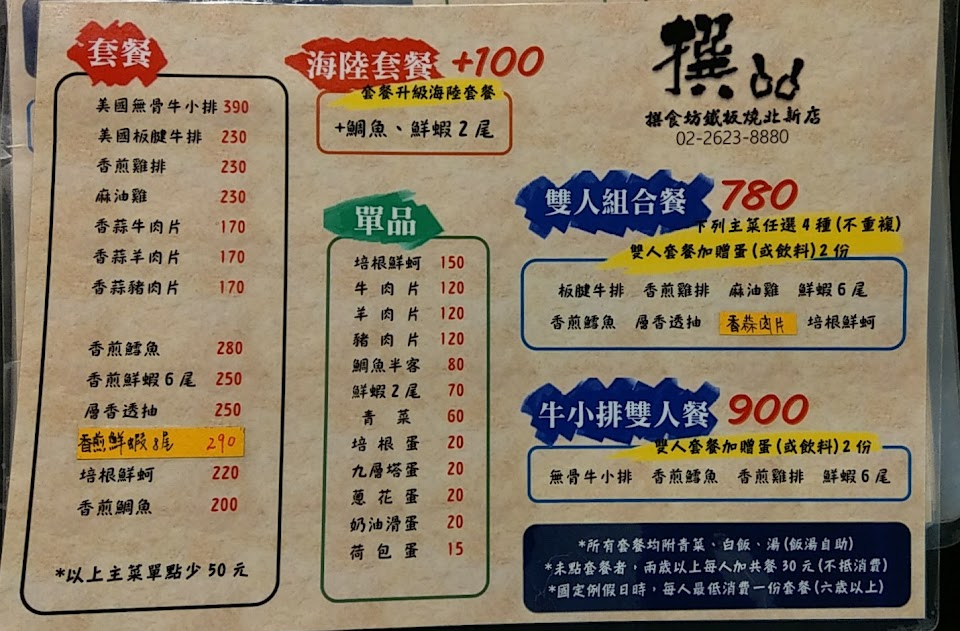 套餐
美國無骨牛小排 390
美國板腱牛排 230
香煎雞排 230
麻油雞 230
香蒜牛肉片 170
香蒜羊肉片 170
香蒜豬肉片 170
香煎鱈魚 280
香煎鮮蝦6尾 250
層香透抽 250
香煎鮮蝦8尾 290
培根鮮蚵 220
香煎鯛魚 200
*以上主菜單點少50元
海陸套餐 +100
套餐升級海陸套餐
+鯛魚、鮮蝦2尾
單品
培根鮮蚵 150
牛肉片 120
羊肉片 120
豬肉片 120
鯛魚半客 80
鮮蝦2尾 70
青菜 60
培根蛋 20
九層塔蛋 20
蔥花蛋 20
奶油滑蛋 20
荷包蛋 15
撰品
撰食坊鐵板燒北新店
02-2623-8880
雙人組合餐 780
下列主菜任選4種(不重複)
雙人套餐加贈蛋(或飲料)2份
板腱牛排 香煎雞排 麻油雞 鮮蝦6尾
香煎鱈魚 層香透抽 香蒜肉片 培根鮮蚵
牛小排雙人餐 900
雙人套餐加贈蛋(或飲料)2份
無骨牛小排 香煎鱈魚 香煎雞排 鮮蝦6尾
*所有套餐均附青菜、白飯、湯(飯湯自助)
*未點套餐者，兩歲以上每人加共餐30元(不抵消費)
*國定例假日時，每人最低消費一份套餐(六歲以上)